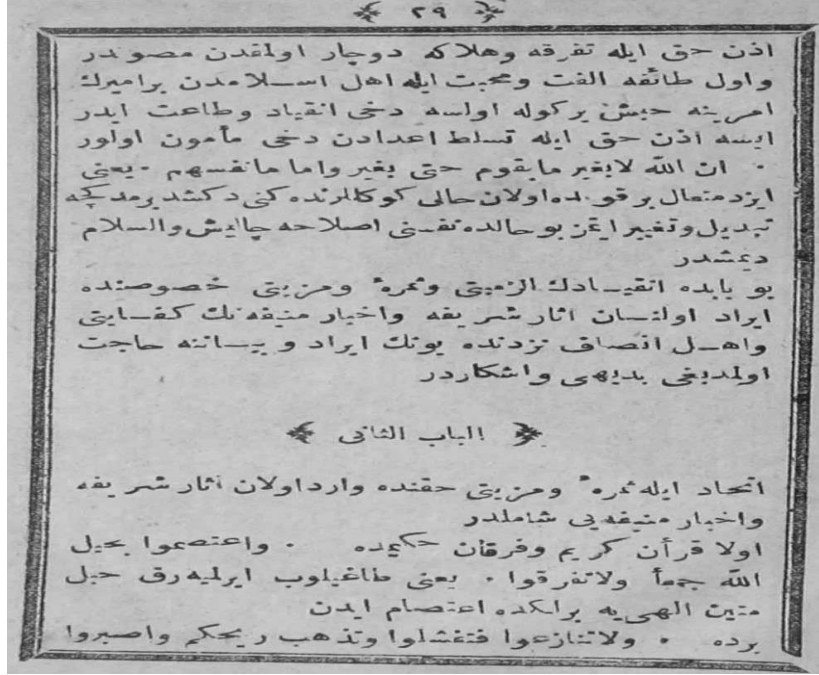 ٢٩
اذن حق ایله تفرقه وهلاکه دوچار اولمقدن مصوندر
واول طائفه الفت ومحبت ایله اهل اسلامدن برامیرك
امرینه حبش برکوله اولسه دخی انقیاد وطاعت ایدر
ایسه اذن حق ایله تسلط اعدادن دخی مأمون اولور
٠ ان الله لایغیر مابقوم حتی یغیر واما مانفسهم ٠ یعنی
ایزد متعال بر قومده اولان حالی کوکللرنده کنی دکشدیرمدکچه
تبدیل وتغییر ایتمز بو حالده نفسنی اصلاحه چالیش والسلام
دیمشدر
بو بابده انقیادك الزمیتی وثمره ٔ ومزیتی خصوصنده
ایراد اولنان اثار شریفه واخبار منیفه نك کفایتی
واهل انصاف نزدنده بونك ایراد و بیاننه حاجت
اولمدیغی بدیهی واشکاردر
الباب الثانی
اتحاد ایله ثمره ٔ ومزیتی حقنده وارد اولان آثار شریفه
واخبار منیفه یی شاملدر
اولا قرأن کریم وفرقان حکیمده ٠ واعتصموا بحبل
الله جمعاً ولاتفرقوا ٠ یعنی طاغیلوب ایرلمیه رق حبل
متین الهی یه برلکده اعتصام ایدن
برده ٠ ولاتنازعوا فتفشلوا وتذهب ریحکم واصبروا